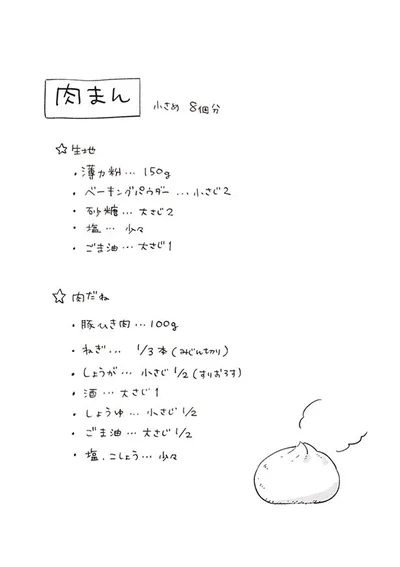 肉まん 小さめ 8個分
☆生地
・薄力粉…150g
・ベーキングパウダー…小さじ2
・砂糖…大さじ2
・塩…少々
・ごま油…大さじ1
☆肉だね
・豚ひき肉…100g
・ねぎ… 1/3本(みじん切り)
・しょうが… 小さじ1/2(すりおろす)
・酒…大さじ1
・しょうゆ…小さじ1/2
・ごま油…大さじ1/2
・塩.こしょう…少々